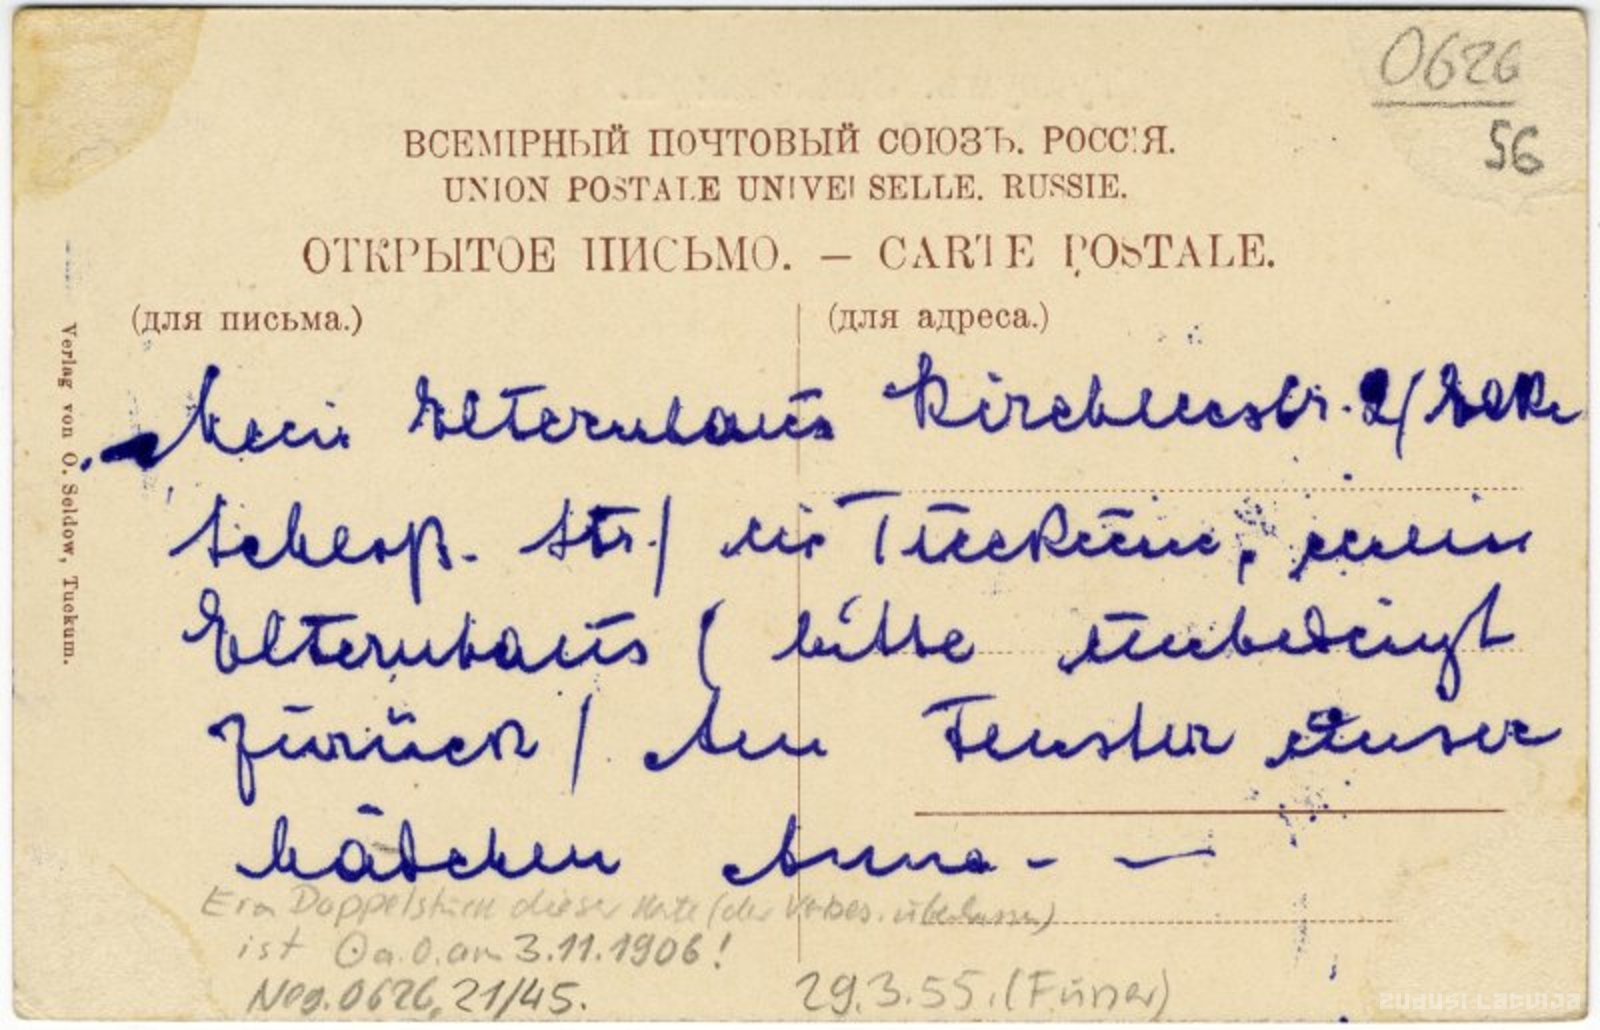 0626
56
ВСЕМІРНЫЙ ПОЧТОВЫЙ СОЮЗЪ. РОССІЯ.
UNION POSTALE UNIVERSELLE. RUSSIE.
ОТКРЫТОЕ ПИСЬМО. — CARTE POSTALE.
(для письма.)
(для адреса.)
Verlag von O. Seldow, Tuckum.
Mein Elternhaus Kirchenstr. 2/Ecke
Schloß. Str./ in Tuckum, mein
Elternhaus (bitte unbedingt
zurück/ Am Fenster unser
Mädchen Anna - —
Ein Doppelstück dieser Karte (der überlassen)
ist a. O. am 3.11.1906!
Neg. 0626, 21/45.
29.3.55.
zudusi Latvija